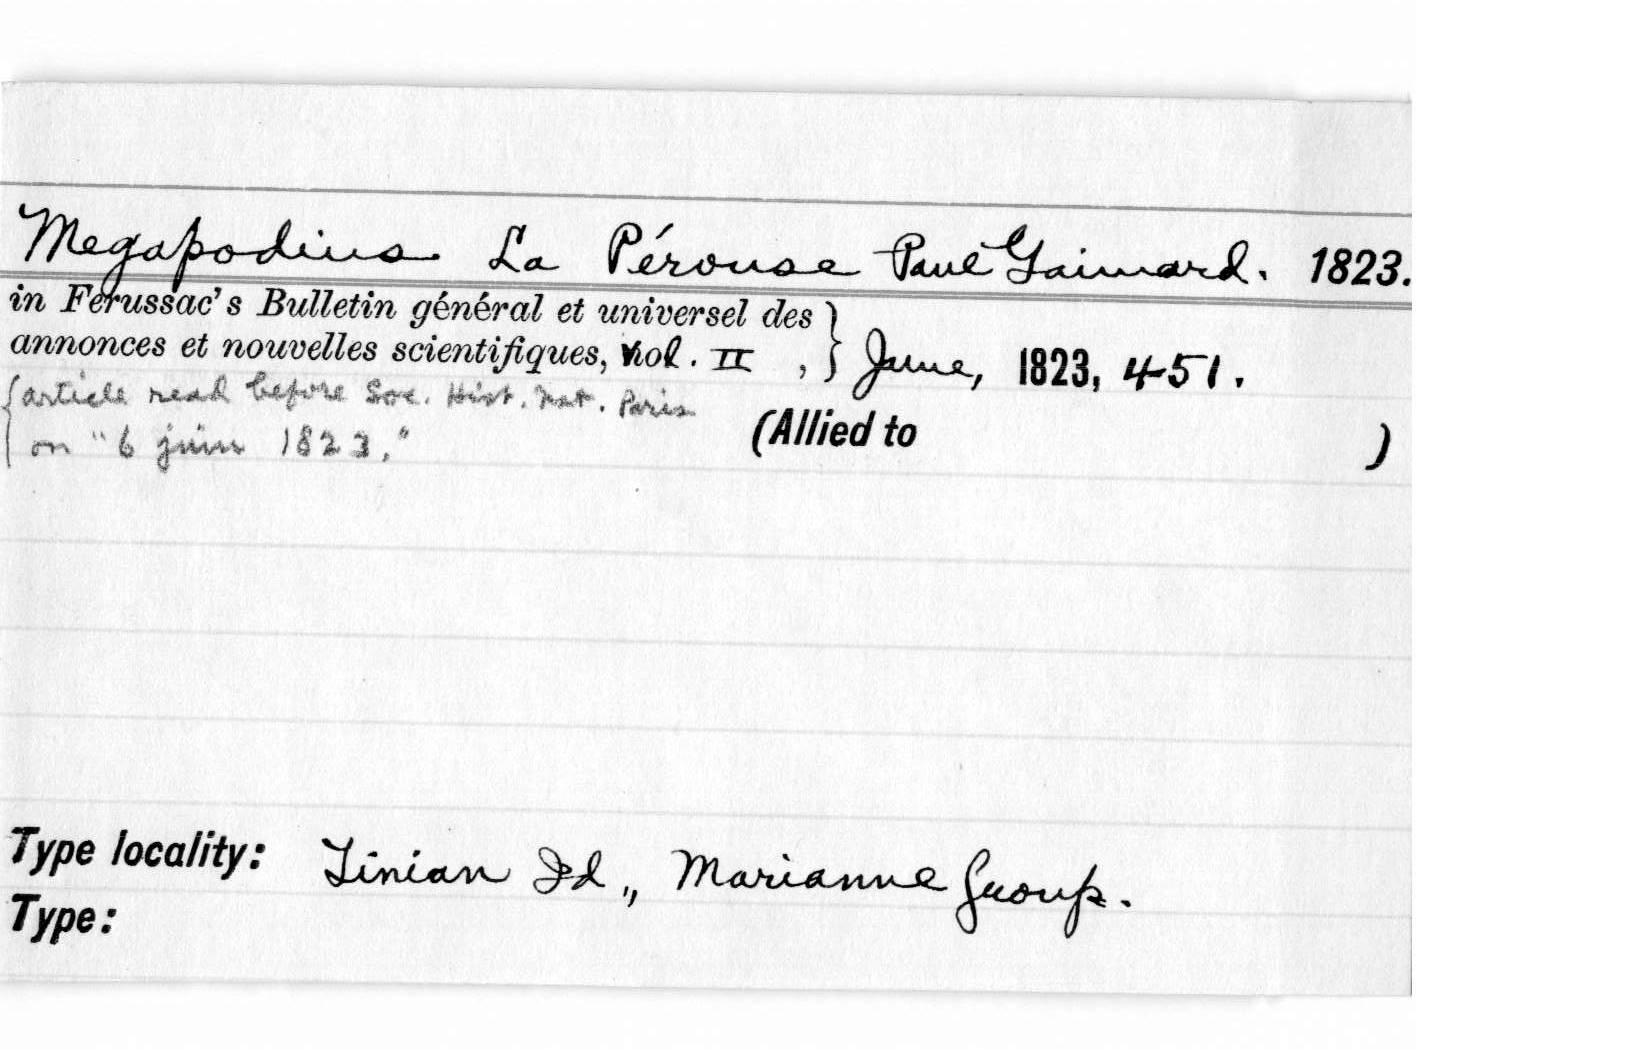 Megapodius La Pérouse Paul Gaimard. 1823.
in Férussac's Bulletin général et universel des
annonces et nouvelles scientifiques, Vol. II , } June, 1823, 451.
{article read before Soc. Hist. Nat. Paris
on "6 juin 1823."
(Allied to )
Type locality: Tinian Id., Marianne Group.
Type: